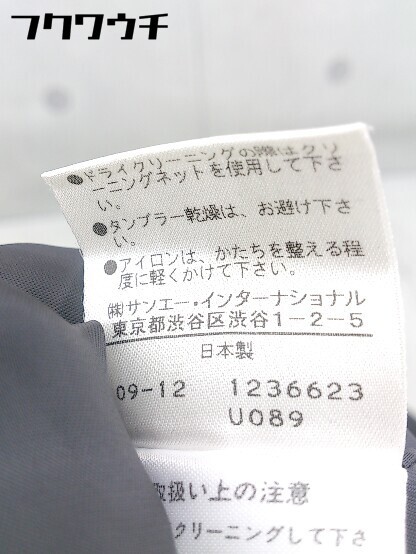 フクワウチ
●ドライクリーニングの際はクリ
ーニングネットを使用して下さ
い。
●タンブラー乾燥は、お避け下さ
い。
●アイロンは、かたちを整える程
度に軽くかけて下さい。
㈱サンエー・インターナショナル
東京都渋谷区渋谷1-2-5
日本製
09-12 1236623
U089
取扱い上の注意
クリーニングして下さ